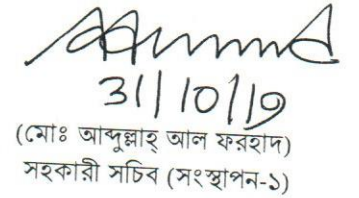 31/10/19
(মোঃ আব্দুল্লাহ্ আল ফরহাদ)
সহকারী সচিব (সংস্থাপন-১)